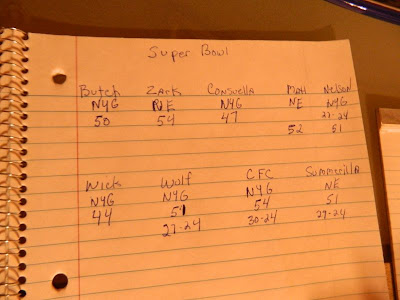 Super Bowl
Butch Zack Consuella Matt Nelson
NYG NE NYG NE NYG
50 54 47 27-24
52 51
Wick Wolf CFC Summerilla
NYG NYG NYG NE
44 51 54 51
27-24 30-24 27-24